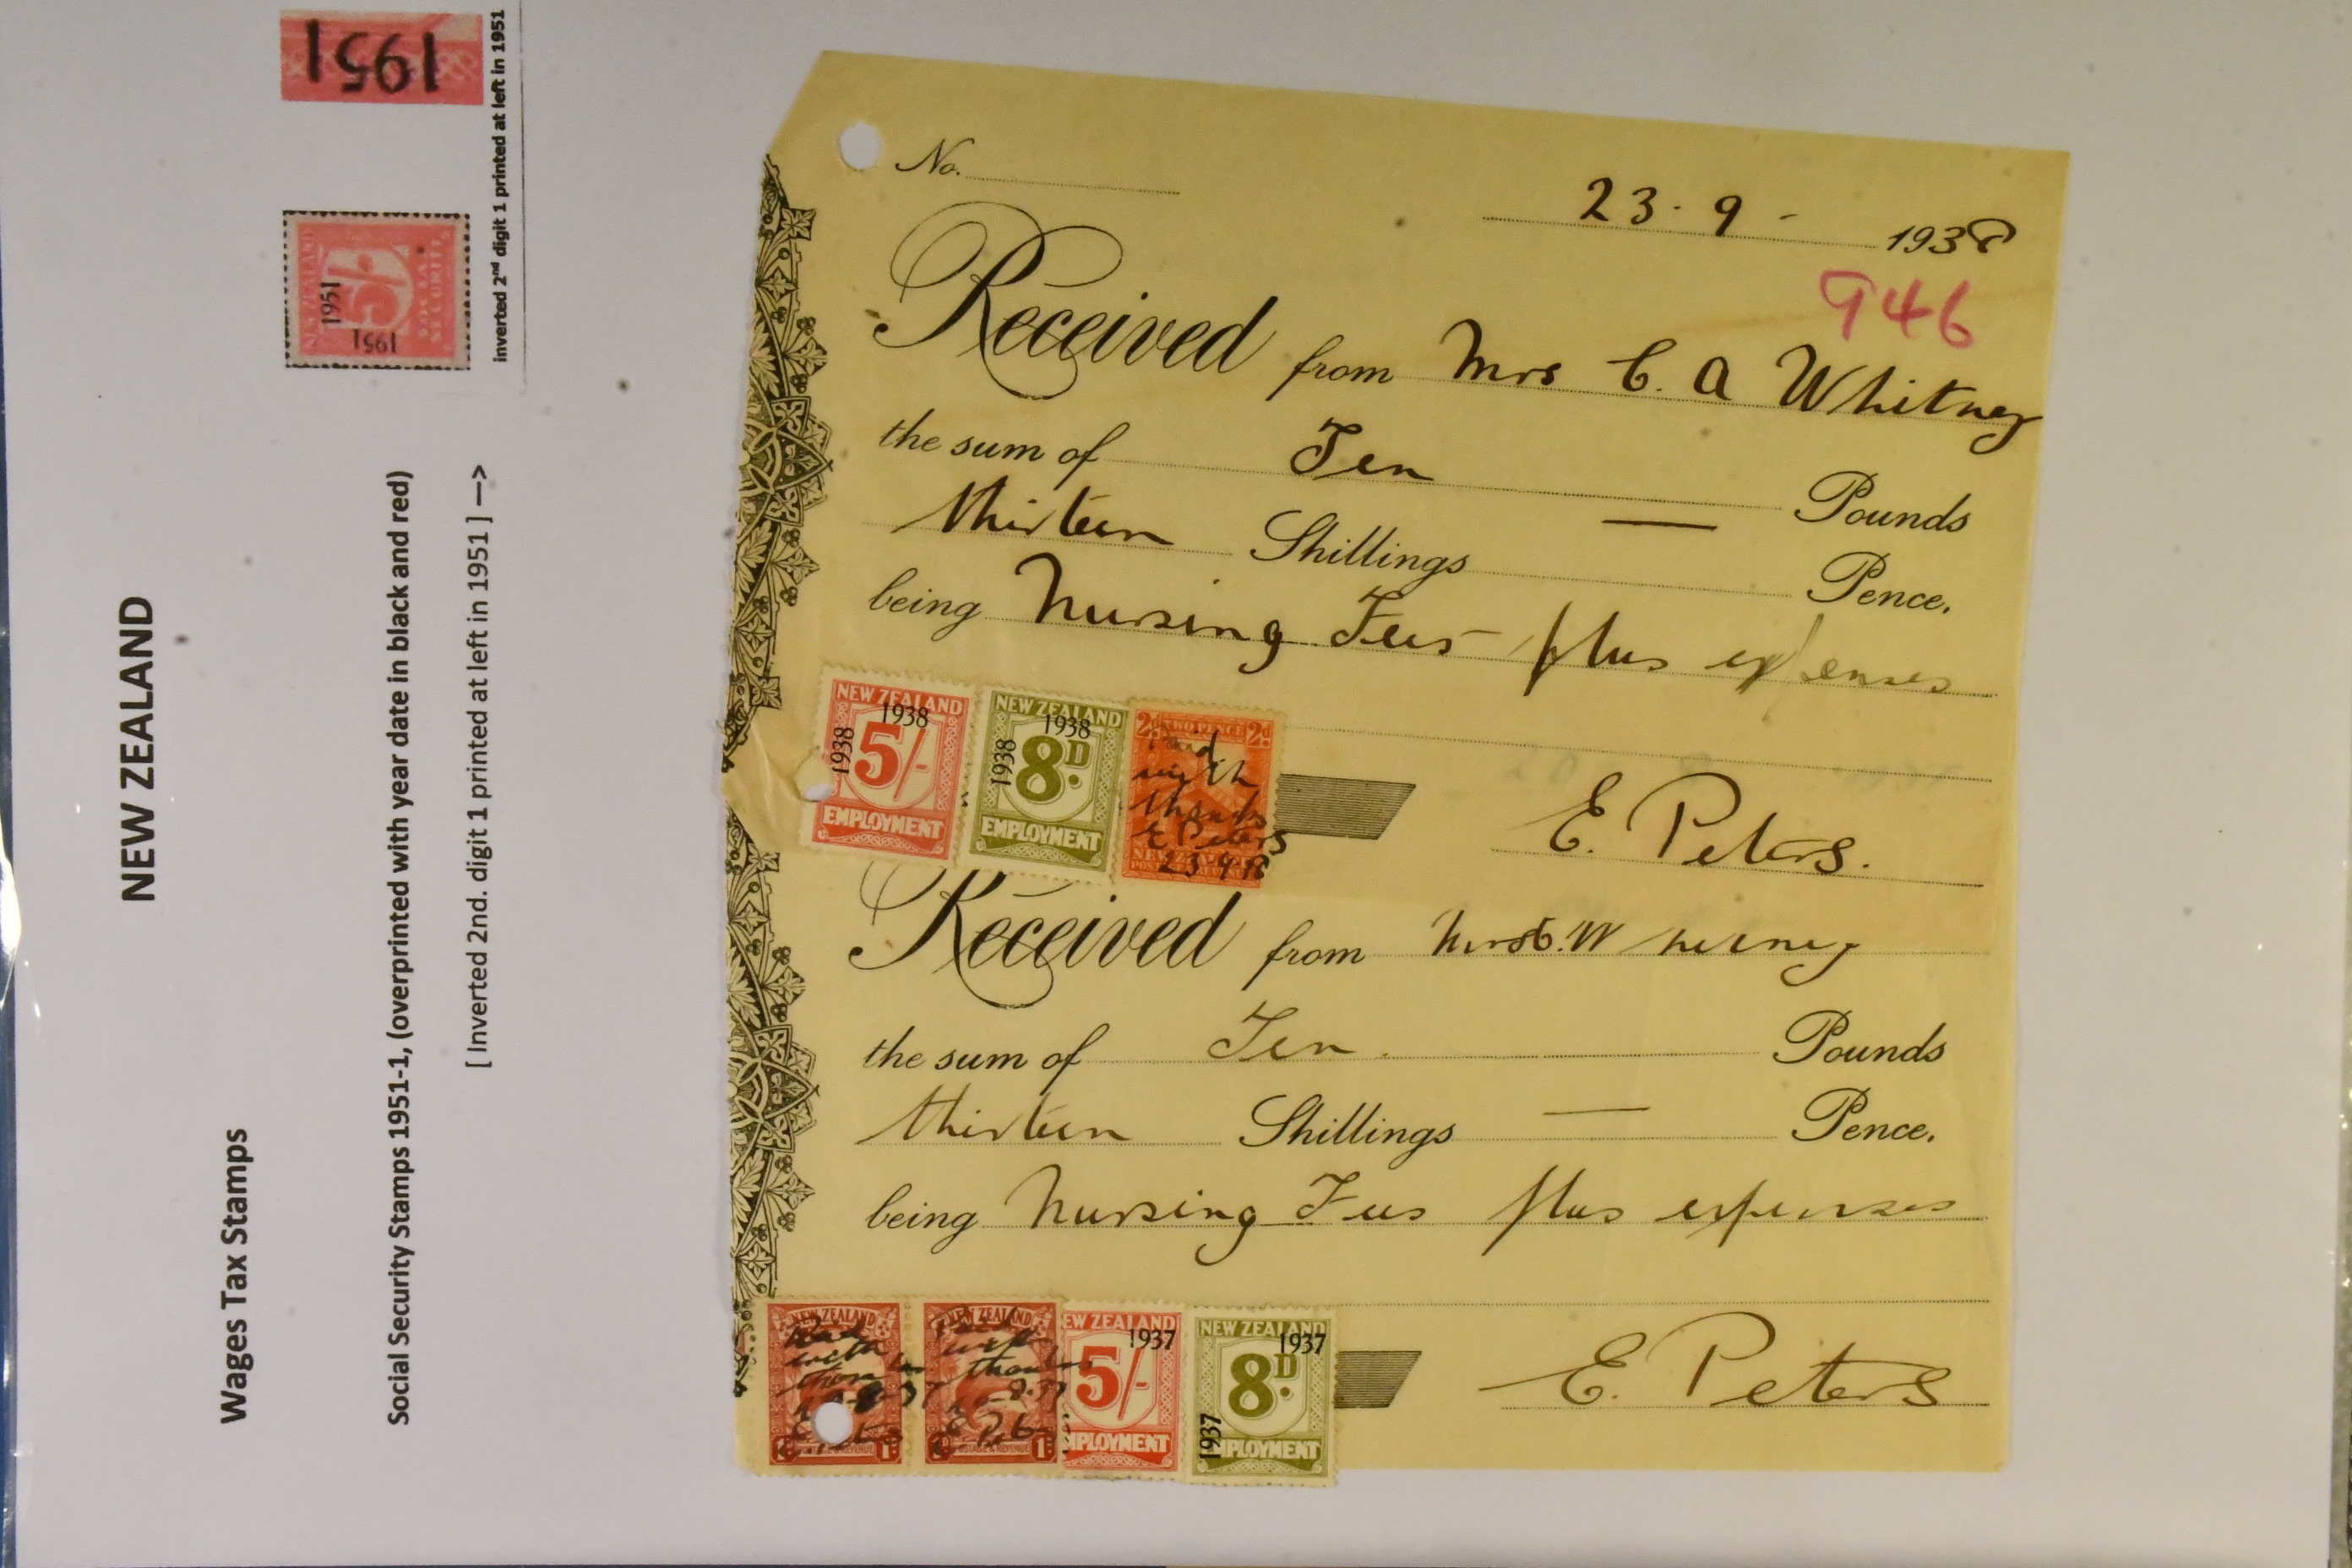 NEW ZEALAND
Wages Tax Stamps
Social Security Stamps 1951-1, (overprinted with year date in black and red)
[ Inverted 2nd. digit 1 printed at left in 1951 ] —>
1951
NEW ZEALAND
5/-
SOCIAL
SECURITY
1951
1951
inverted 2nd digit 1 printed at left in 1951
No.
23 . 9 - 1938
946
Received from Mrs C. A Whitney
the sum of Ten Pounds
thirteen Shillings — Pence.
being Nursing Fees plus expenses
NEW ZEALAND
1938
1938
5/-
EMPLOYMENT
NEW ZEALAND
1938
1938
8D.
EMPLOYMENT
2d TWO PENCE 2d
Paid
with
thanks
E Peters
23 9 38
E. Peters.
Received from Mrs C. Whitney
the sum of Ten. Pounds
thirteen Shillings — Pence.
being Nursing Fees plus expenses
NEW ZEALAND
with
NEW ZEALAND
with
thanks
EW ZEALAND
1937
5/-
MPLOYMENT
NEW ZEALAND
1937
8D.
1937
MPLOYMENT
E. Peters